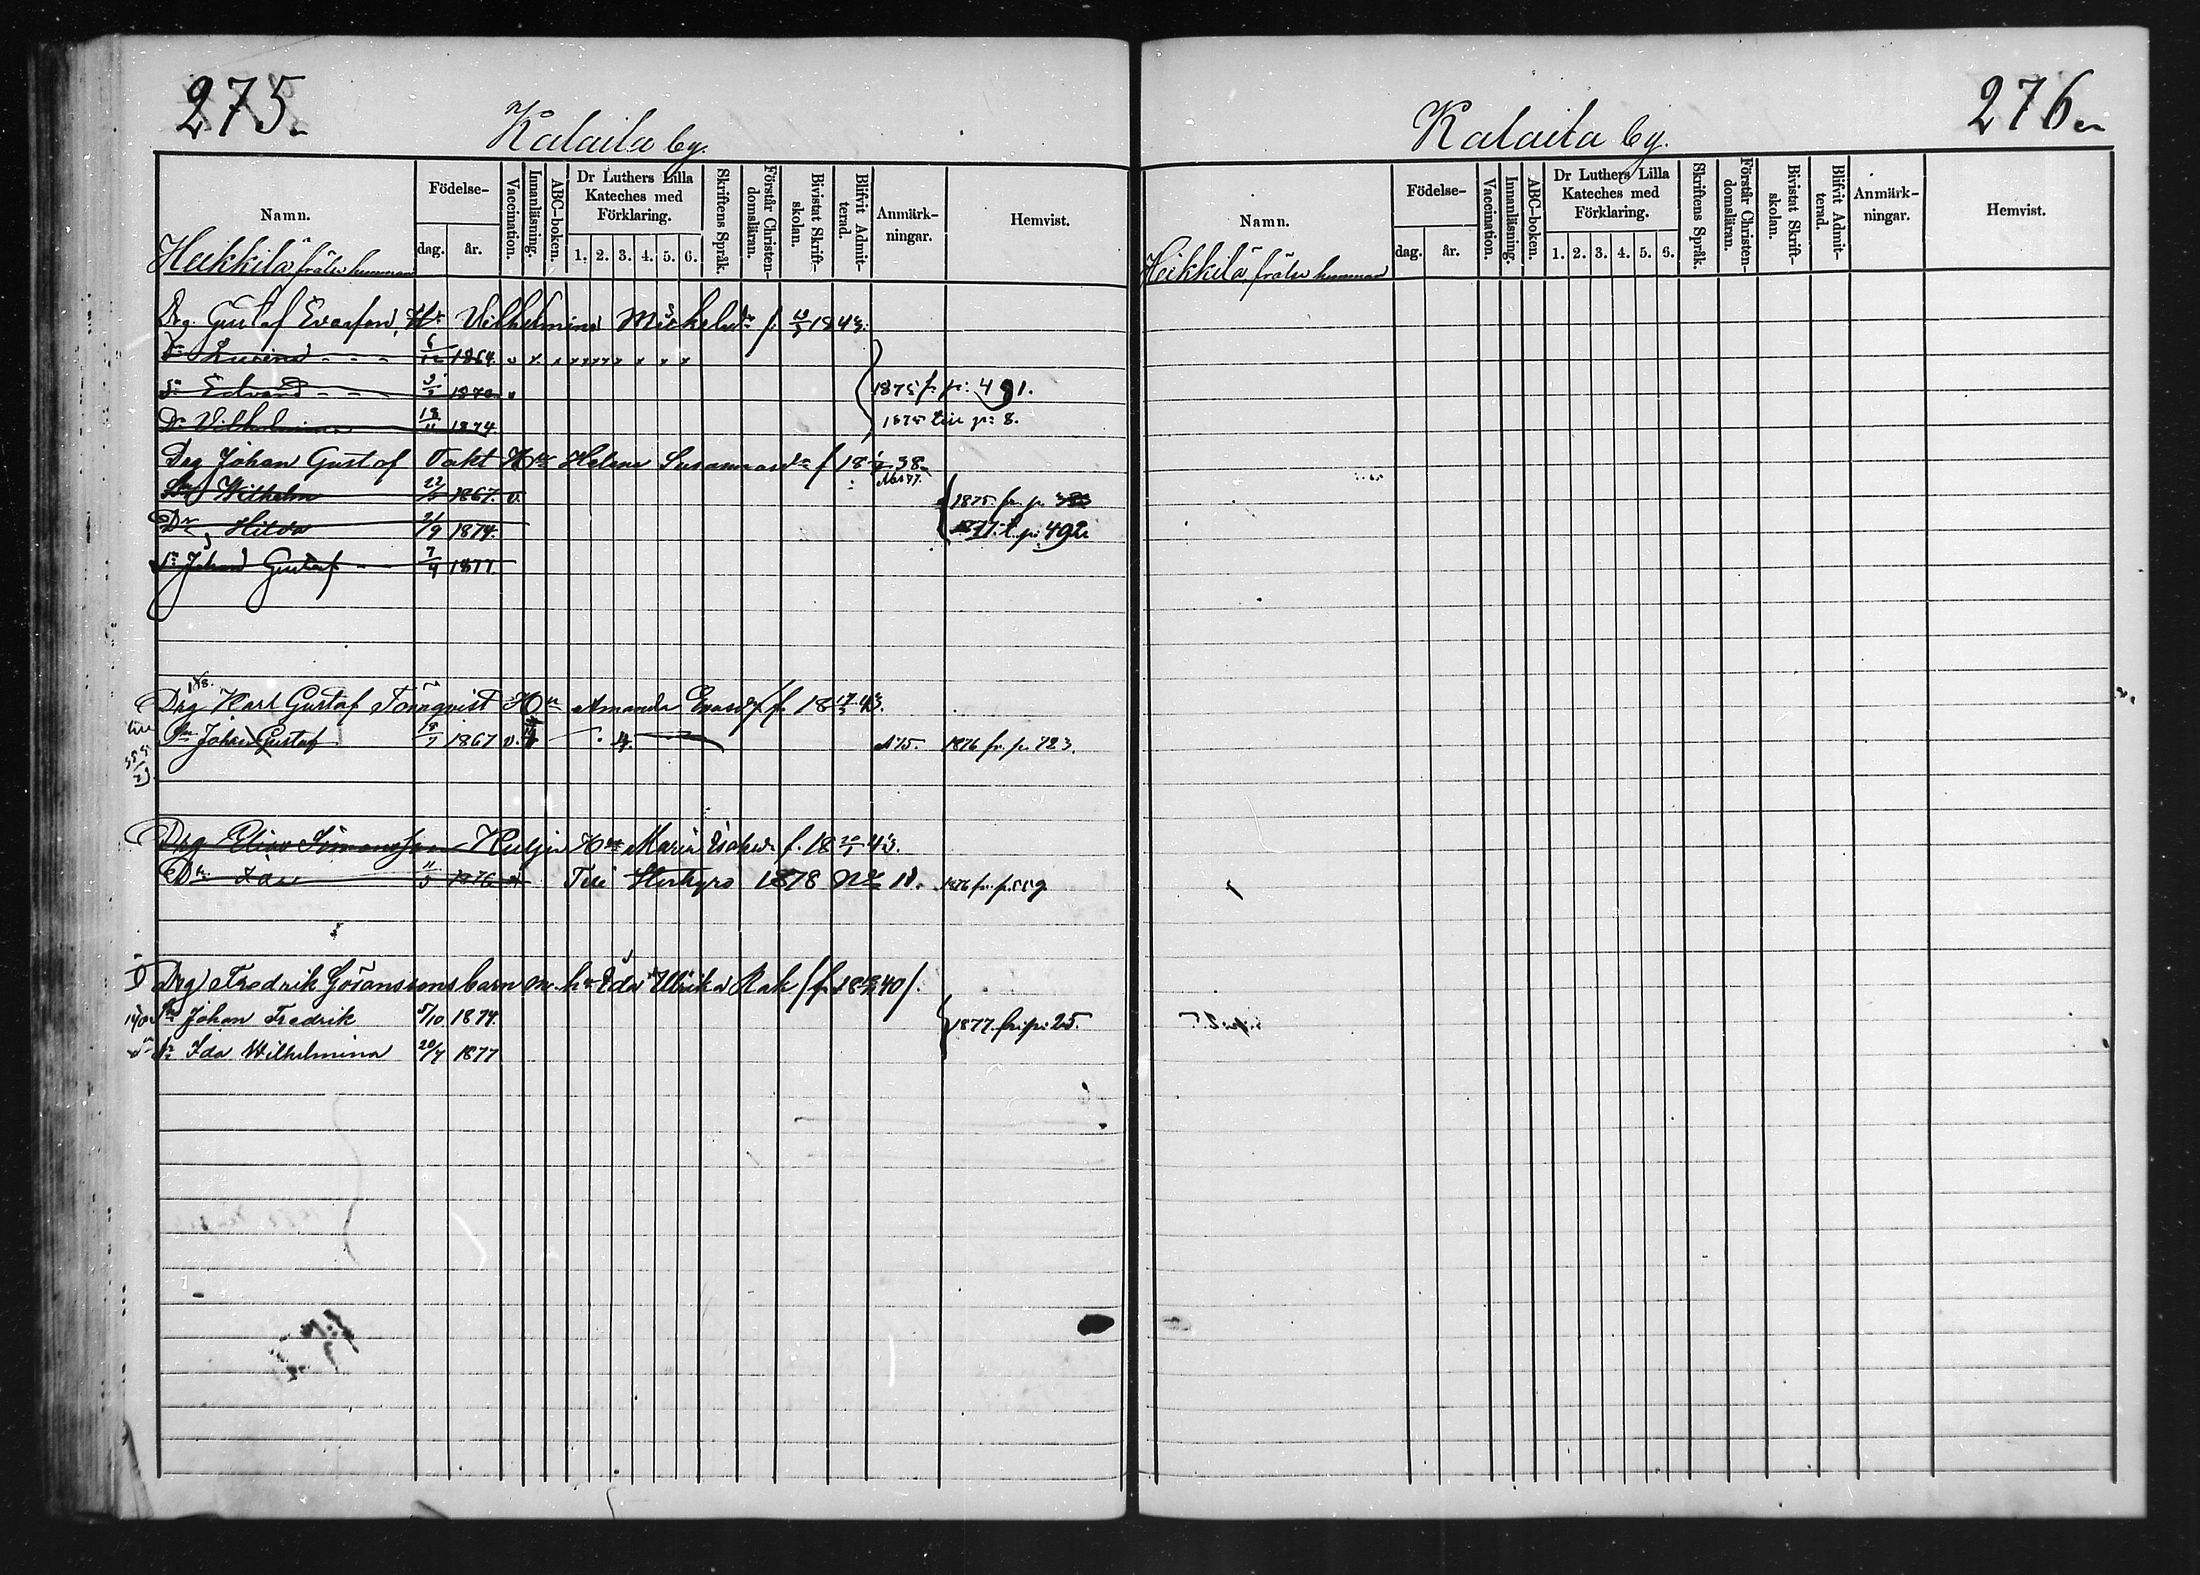 275.
Kalaila by.
Namn. Födelse- dag. år. Vaccination. Innanläsning. ABC-boken. Dr Luthers Lilla Kateches med Förklaring. 1. 2. 3. 4. 5. 6. Skriftens Språk. Förstår Christen-domsläran. Bivistat Skrift-skolan. Blifvit Admit-terad. Anmärk-ningar. Hemvist.
Heikkilä frälse hemman
Drg. Gustaf Evasson, Hu Vilhelmina Michelsdr f. 1843.
Dr 1864.
Sn Edvard 1870 v
1875 fr. p: 491.
Dr Vilhelmina 13/11 1874.
1875 till p: 8.
Drg Johan Gustaf Takt Hu Helena Susannasdr f 18 38
Sn Wilhelm 22/5 1867. v.
1875 fr. p.
Dr Hilda 2/9 1874.
1877. t. p: 492
Sn Johan Gustaf 7/4 1877.
178.
Drg Karl Gustaf Törnqvist Hu Amanda Evasdr f. 18 43.
Sn Johan Gustaf 1867 v.
A 75. 1876 fr. p. 723.
Drg Elias Simonsson Kuljin Hu Maria f. 18 43.
Dr Ida 11/3 1876 v Till Storkyro 1878 No 11. 1876 fr. p.
Drg Fredrik Göransson barn m. h. Eda Ulrika Rak (f. 18 40).
Sn Johan Fredrik 5/10 1874.
1877 fr. p: 25.
Dr Ida Wilhelmina 20/7 1877
276.
Kalaila by.
Namn. Födelse- dag. år. Vaccination. Innanläsning. ABC-boken. Dr Luthers Lilla Kateches med Förklaring. 1. 2. 3. 4. 5. 6. Skriftens Språk. Förstår Christen-domsläran. Bivistat Skrift-skolan. Blifvit Admit-terad. Anmärk-ningar. Hemvist.
Heikkilä frälse hemman